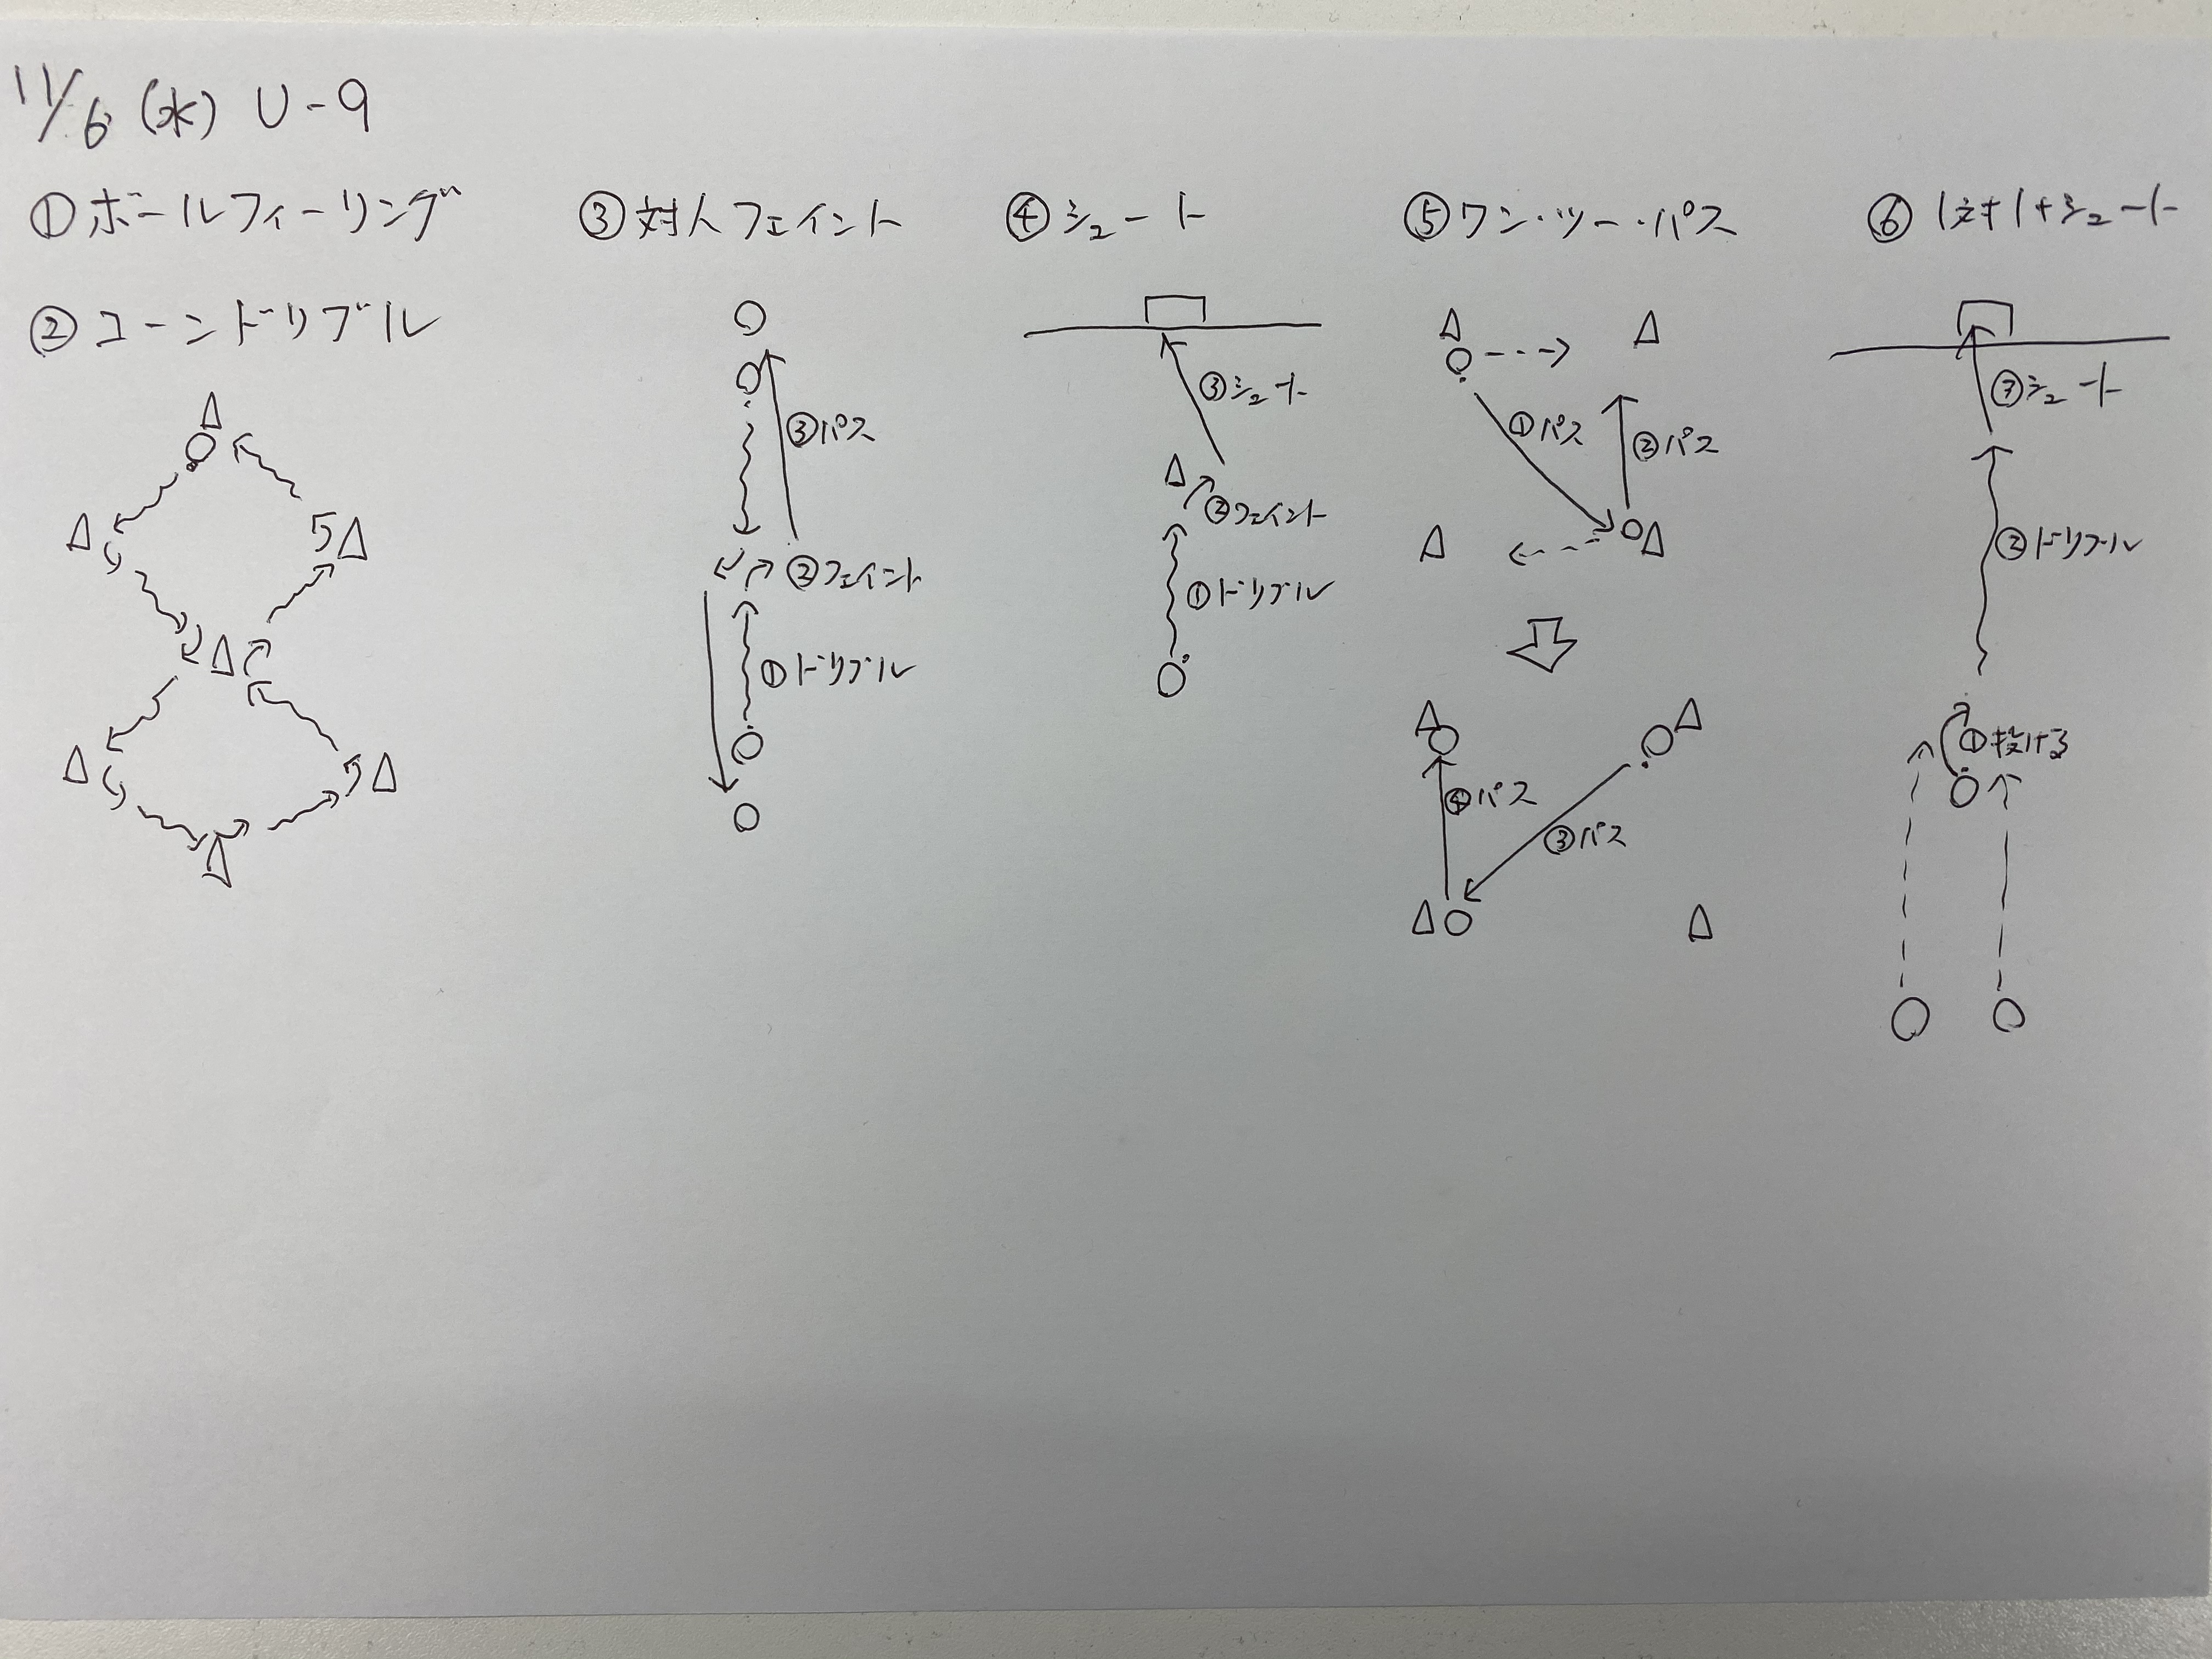 11/6 (水) U-9
①ボールフィーリング
②コーンドリブル
③対人フェイント
③パス
②フェイント
①ドリブル
④シュート
③シュート
②フェイント
①ドリブル
⑤ワン・ツー・パス
①パス
②パス
④パス
③パス
⑥1対1+シュート
③シュート
②ドリブル
①抜ける